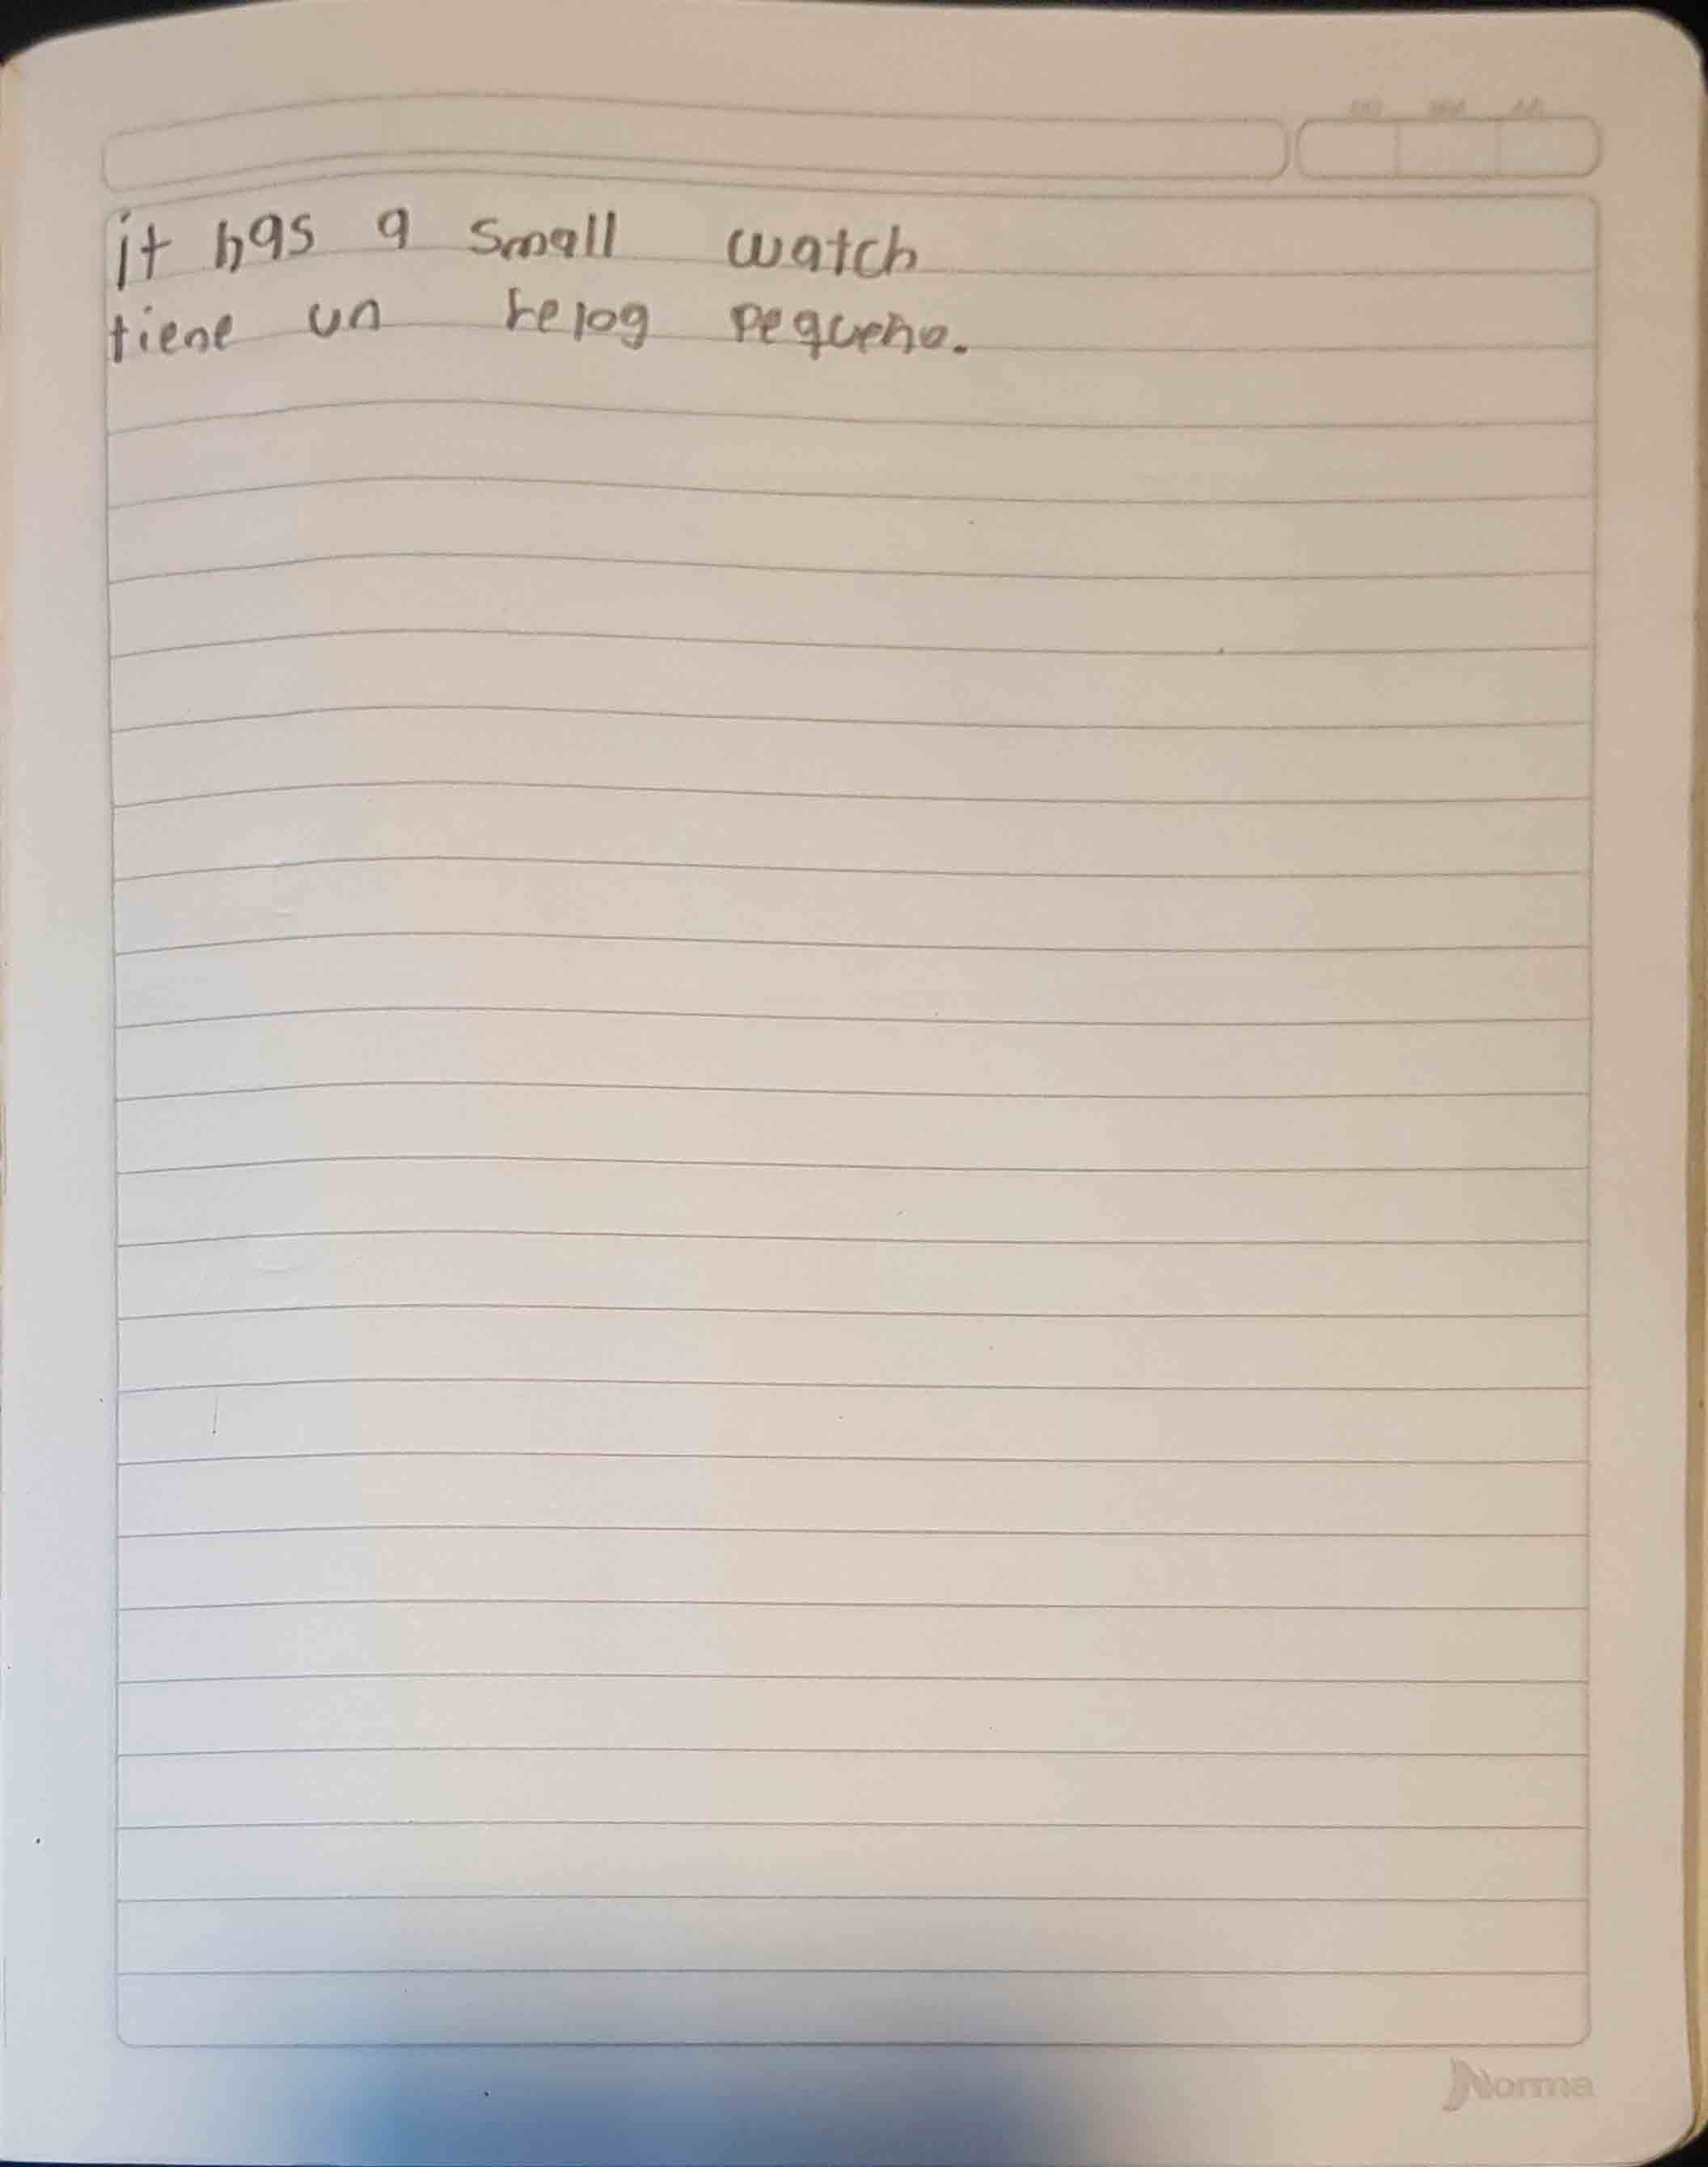 it has a small watch
tiene un relog pequeño.
Norma